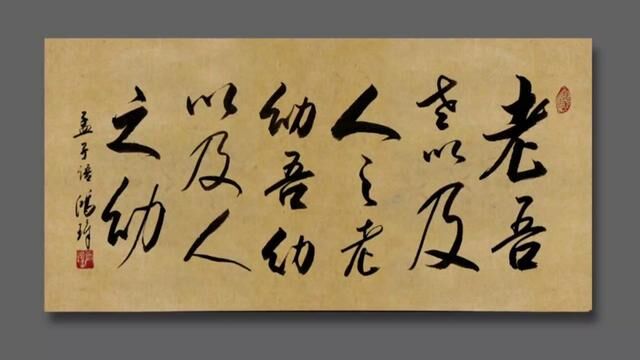 老吾
老以及
人之老
幼吾幼
以及人
之幼
孟子语